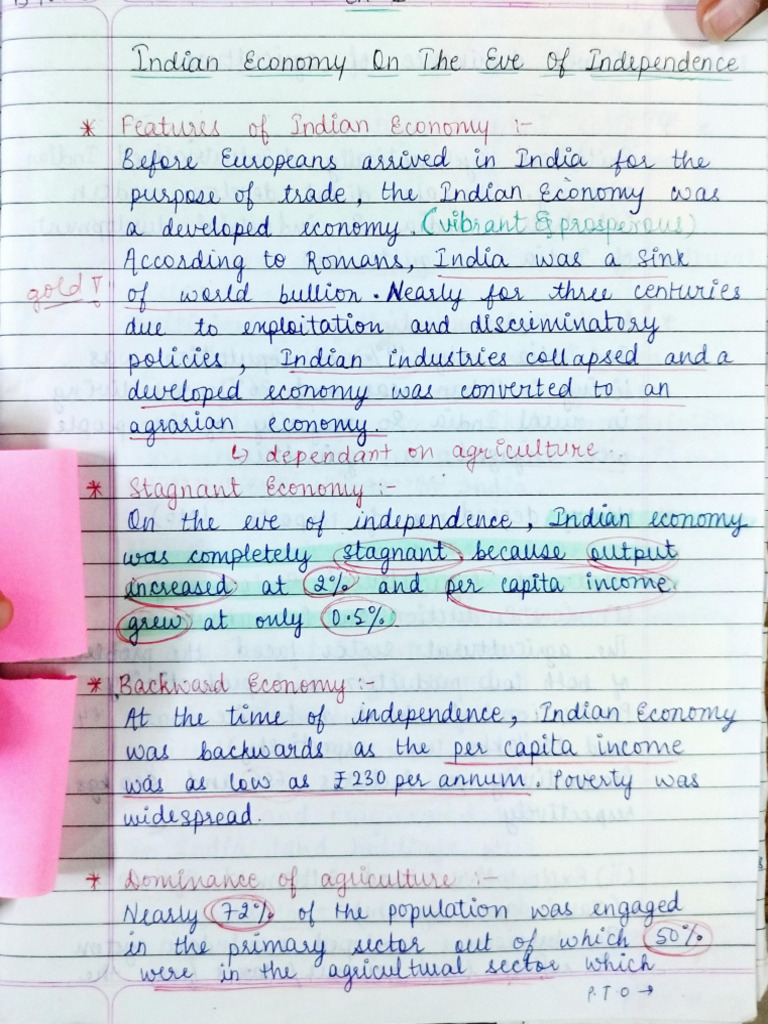 Indian Economy On The Eve Of Independence
* Features of Indian Economy :-
Before Europeans arrived in India for the
purpose of trade, the Indian Economy was
a developed economy. (vibrant & prosperous)
According to Romans, India was a sink
gold
of world bullion. Nearly for three centuries
due to exploitation and discriminatory
policies, Indian industries collapsed and a
developed economy was converted to an
agrarian economy.
↳ dependant on agriculture
* Stagnant Economy :-
On the eve of independence, Indian economy
was completely stagnant because output
increased at 2% and per capita income
grew at only 0.5%.
* Backward Economy :-
At the time of independence, Indian Economy
was backwards as the per capita income
was as low as ₹230 per annum. Poverty was
widespread.
* Dominance of agriculture :-
Nearly 72% of the population was engaged
in the primary sector out of which 50%
were in the agricultural sector which
P.T.O →